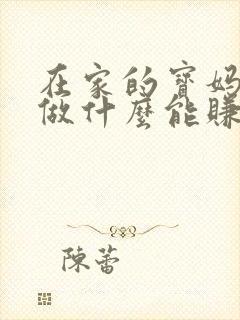 在家的寶媽
做什麼能賺
陳蕾